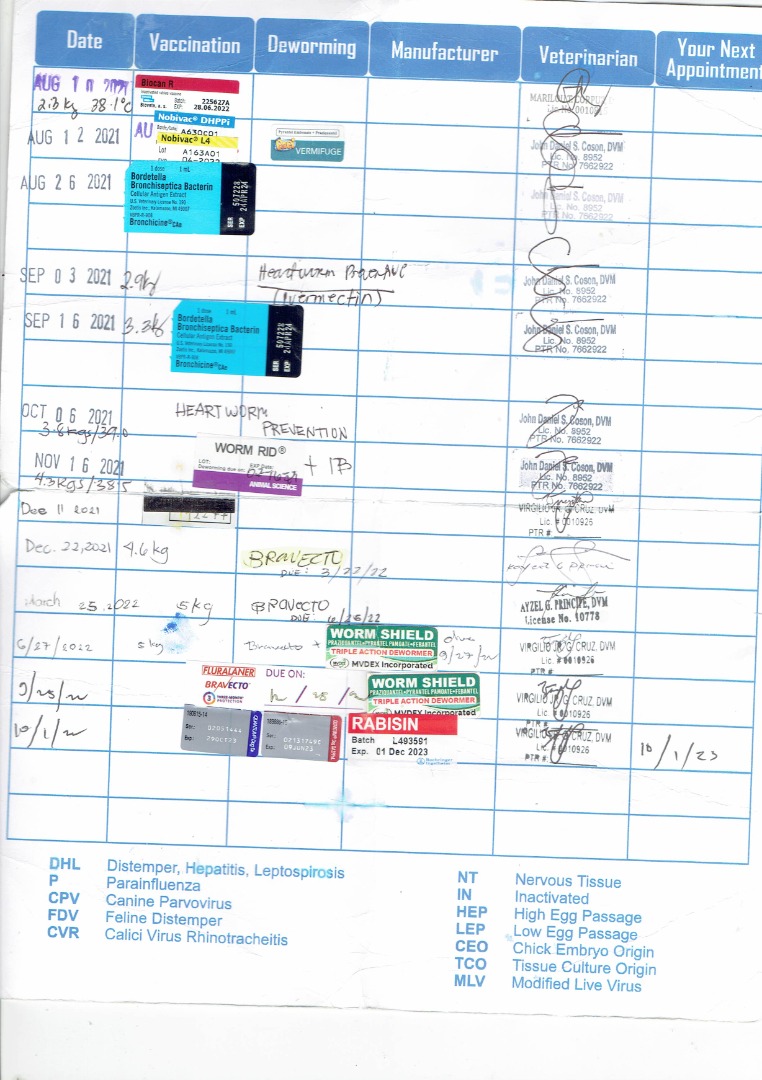 Date Vaccination Deworming Manufacturer Veterinarian Your Next Appointment
AUG 10 2021
2.3 kg 38.1°C
Biocan R
Batch: 225627A
EXP: 28.06.2022
Nobivac® DHPPi
A630C01
Nobivac® L4
Lot A163A01
AUG 12 2021 AU
VERMIFUGE
John Daniel S. Coson, DVM
Lic. No. 8952
PTR No. 7662922
AUG 26 2021
1 dose 1 mL
Bordetella
Bronchiseptica Bacterin
Cellular Antigen Extract
Bronchicine® CAe
SER 507228
EXP 24APR24
John Daniel S. Coson, DVM
Lic. No. 8952
PTR No. 7662922
SEP 03 2021 2.9kg
Heartworm Preventive
(Ivermectin)
John Daniel S. Coson, DVM
Lic. No. 8952
PTR No. 7662922
SEP 16 2021 3.3kg
1 dose 1 mL
Bordetella
Bronchiseptica Bacterin
Cellular Antigen Extract
Bronchicine® CAe
SER 507228
EXP 24APR24
John Daniel S. Coson, DVM
Lic. No. 8952
PTR No. 7662922
OCT 06 2021
3.8kgs/39.0
HEARTWORM
PREVENTION
John Daniel S. Coson, DVM
Lic. No. 8952
PTR No. 7662922
NOV 16 2021
4.3kgs/38.5
WORM RID®
LOT: EXP. Date:
Deworming due on:
ANIMAL SCIENCE
John Daniel S. Coson, DVM
Lic. No. 8952
PTR No. 7662922
Dec 11 2021
VIRGILIO JR. G. CRUZ, DVM
Lic. # 0010926
PTR #
Dec. 22, 2021 4.6 kg
BRAVECTO
DUE: 3/22/22
March 25, 2022 5kg
BRAVECTO
DUE: 6/25/22
AYZEL G. PRINCIPE, DVM
License No. 10778
6/27/2022 5kg
Bravecto +
WORM SHIELD
PRAZIQUANTEL•PYRANTEL PAMOATE•FEBANTEL
TRIPLE ACTION DEWORMER
MVDEX Incorporated
due 9/27/22
VIRGILIO JR. G. CRUZ, DVM
Lic. # 0010926
PTR #
9/25/22
FLURALANER
BRAVECTO
DUE ON:
WORM SHIELD
PRAZIQUANTEL•PYRANTEL PAMOATE•FEBANTEL
TRIPLE ACTION DEWORMER
MVDEX Incorporated
VIRGILIO JR. G. CRUZ, DVM
Lic. # 0010926
PTR #
10/1/22
RABISIN
Batch L493591
Exp. 01 Dec 2023
VIRGILIO JR. G. CRUZ, DVM
Lic. # 0010926
PTR #
10/1/23
DHL Distemper, Hepatitis, Leptospirosis
P Parainfluenza
CPV Canine Parvovirus
FDV Feline Distemper
CVR Calici Virus Rhinotracheitis
NT Nervous Tissue
IN Inactivated
HEP High Egg Passage
LEP Low Egg Passage
CEO Chick Embryo Origin
TCO Tissue Culture Origin
MLV Modified Live Virus